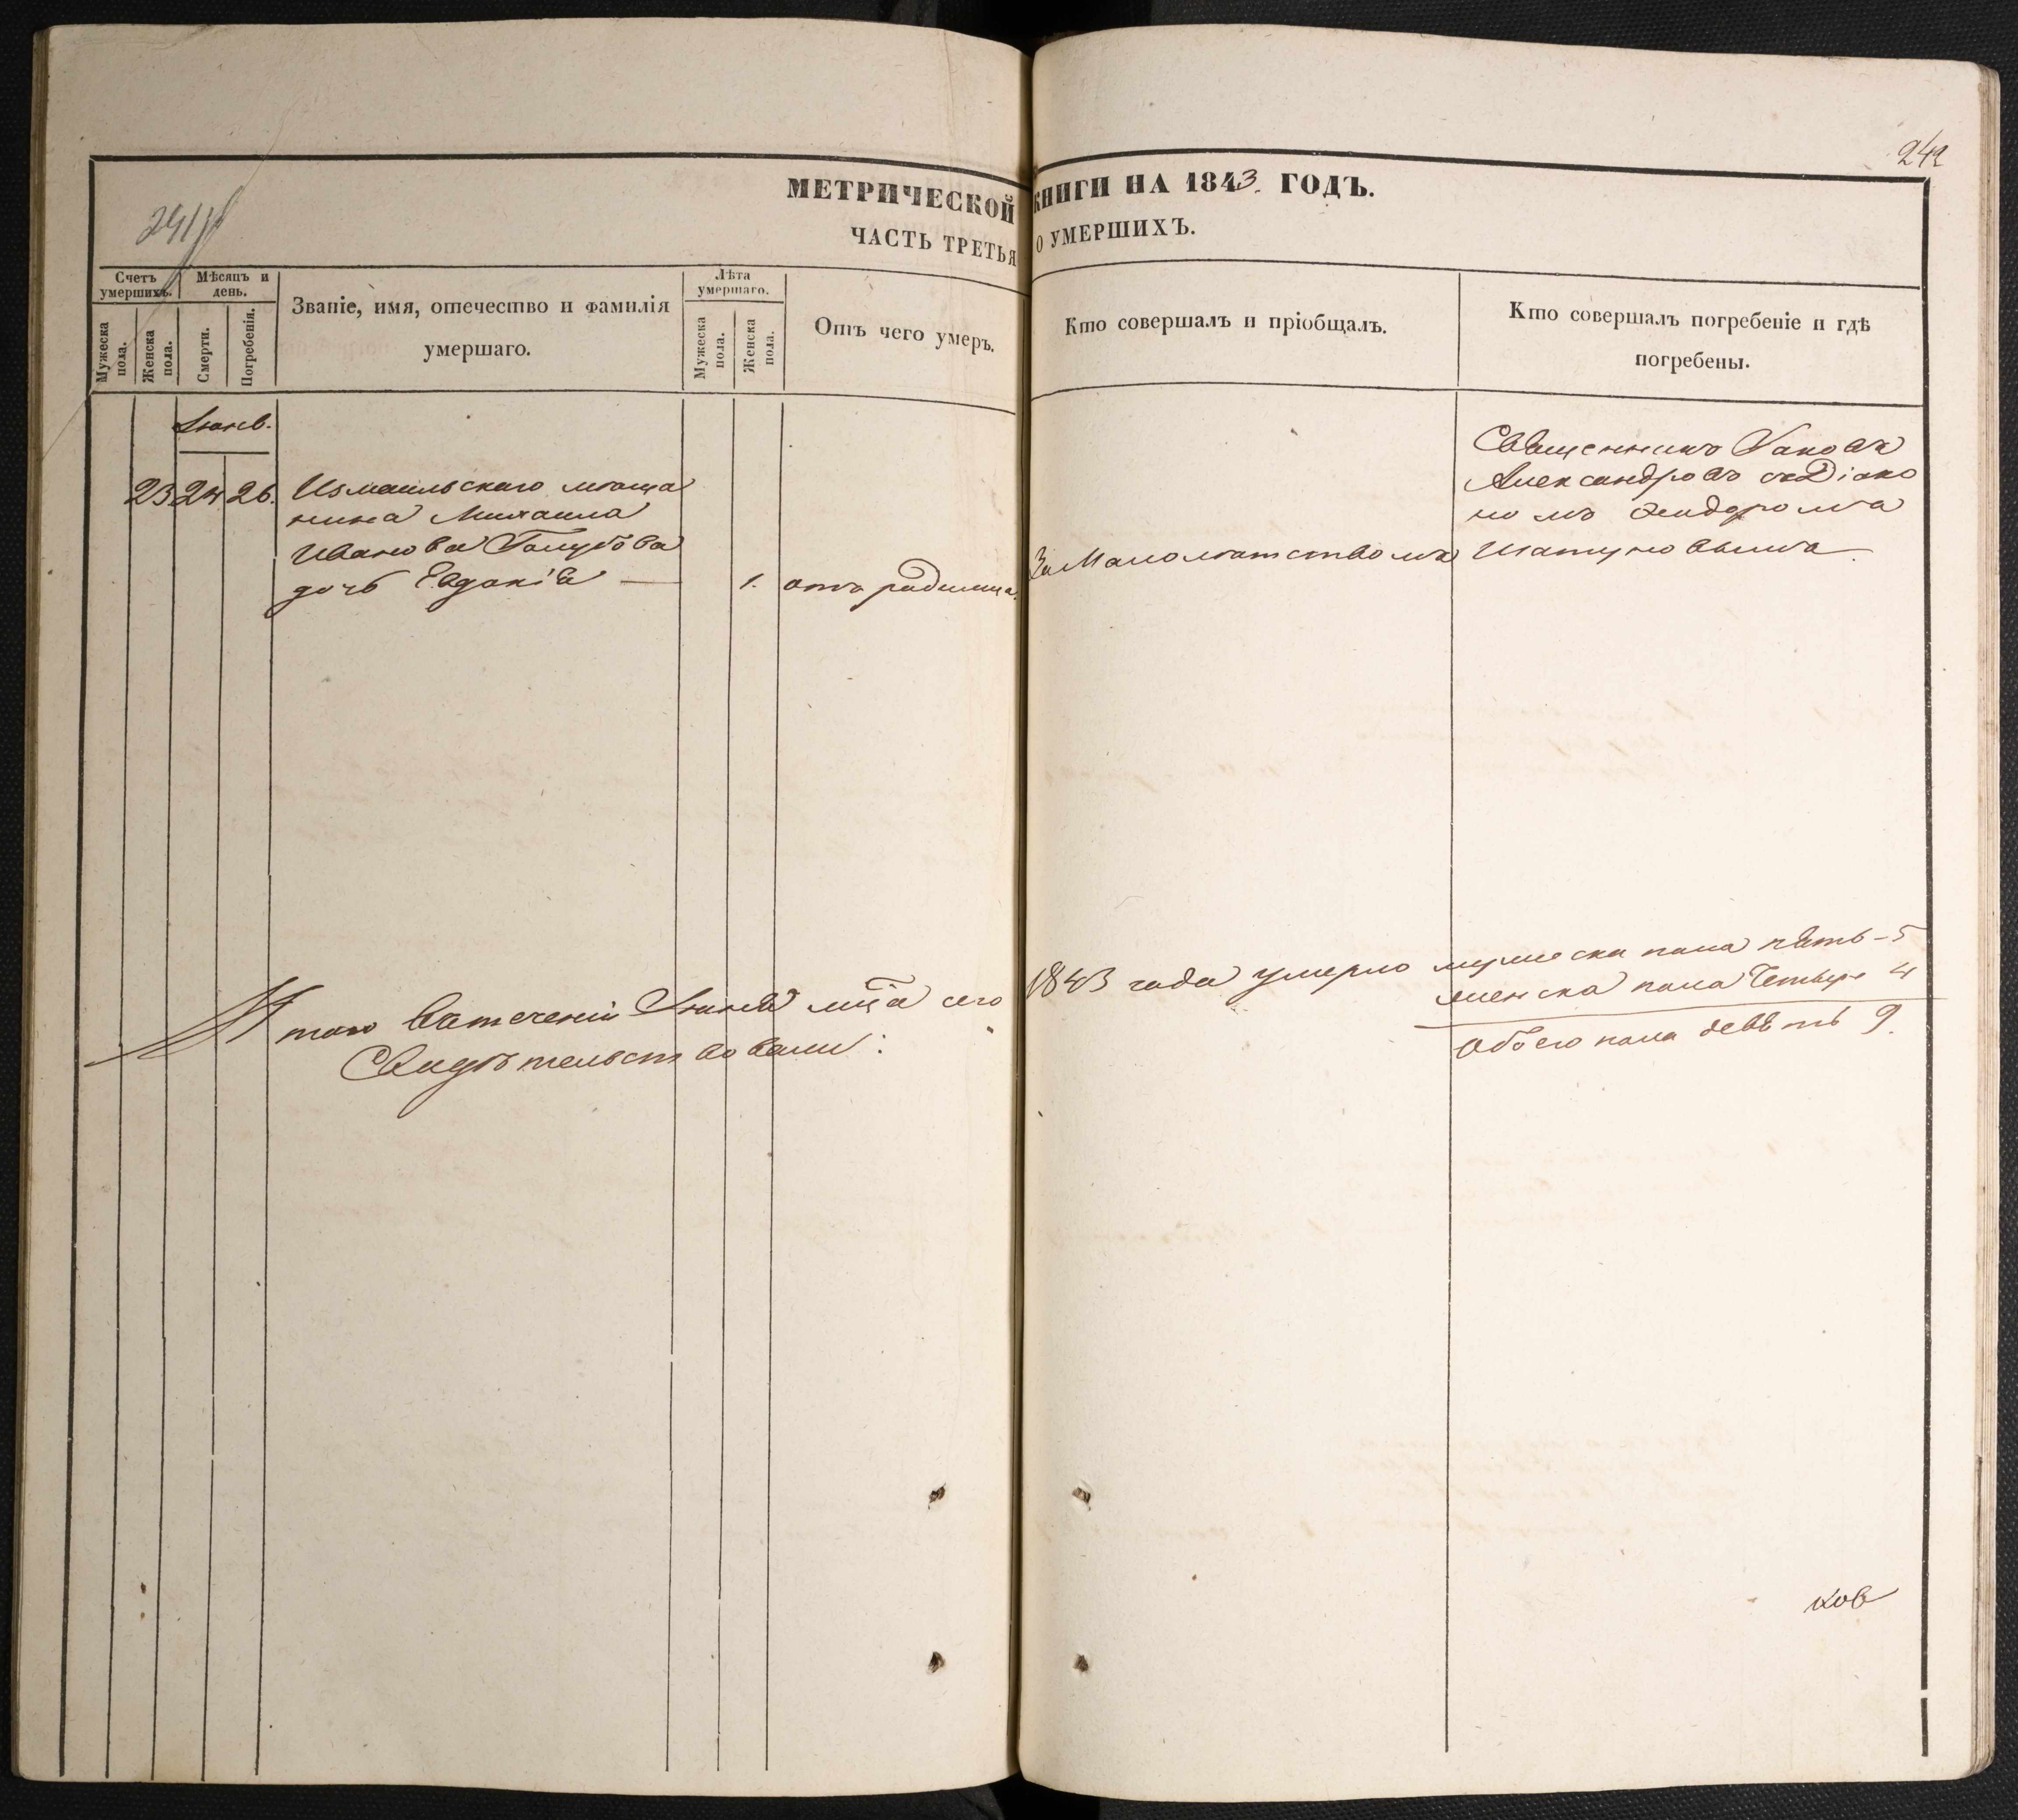 242
241
МЕТРИЧЕСКОЙ КНИГИ НА 1843. ГОДЪ.
ЧАСТЬ ТРЕТЬЯ О УМЕРШИХЪ.
Счетъ умершихъ.
Мужеска пола.
Женска пола.
Мѣсяцъ и день.
Смерти.
Погребенія.
Званіе, имя, отечество и фамилія
умершаго.
Лѣта умершаго.
Мужеска пола.
Женска пола.
Отъ чего умеръ.
Кто совершалъ и пріобщалъ.
Кто совершалъ погребеніе и гдѣ
погребены.
23. 24 26.
Измаильскаго мѣща
нина Михаила
Иванова Голубова
дочь Евдокія
1.
отъ родимца.
За Малолѣтствомъ
Священникъ Іаковъ
Александровъ съ Діако
номъ Феодоромъ
Шатуновымъ
Итого въ теченіи Іюня мца сего 1843 года умерло мужеска пола пять - 5
женска пола четыре 4
Обоего пола девять 9.
Свидѣтельствовали:
ков